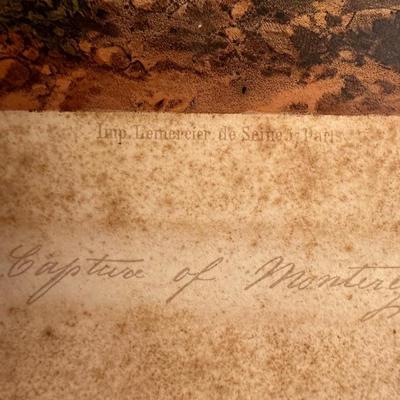 Imp. Lemercier, de Seine, Paris
Capture of Monterey